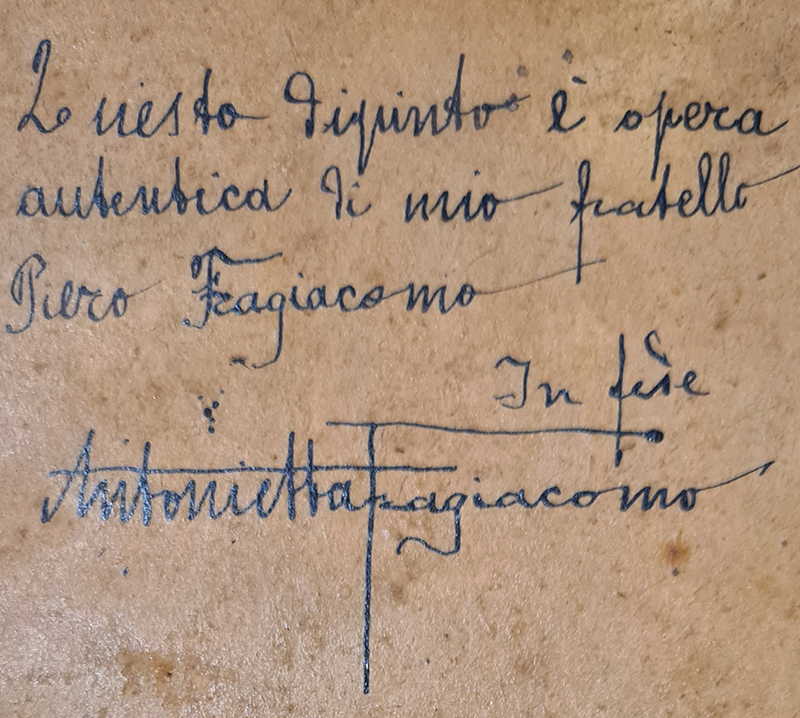 Questo dipinto è opera
autentica di mio fratello
Piero Fragiacomo
In fede
Antonietta Fragiacomo